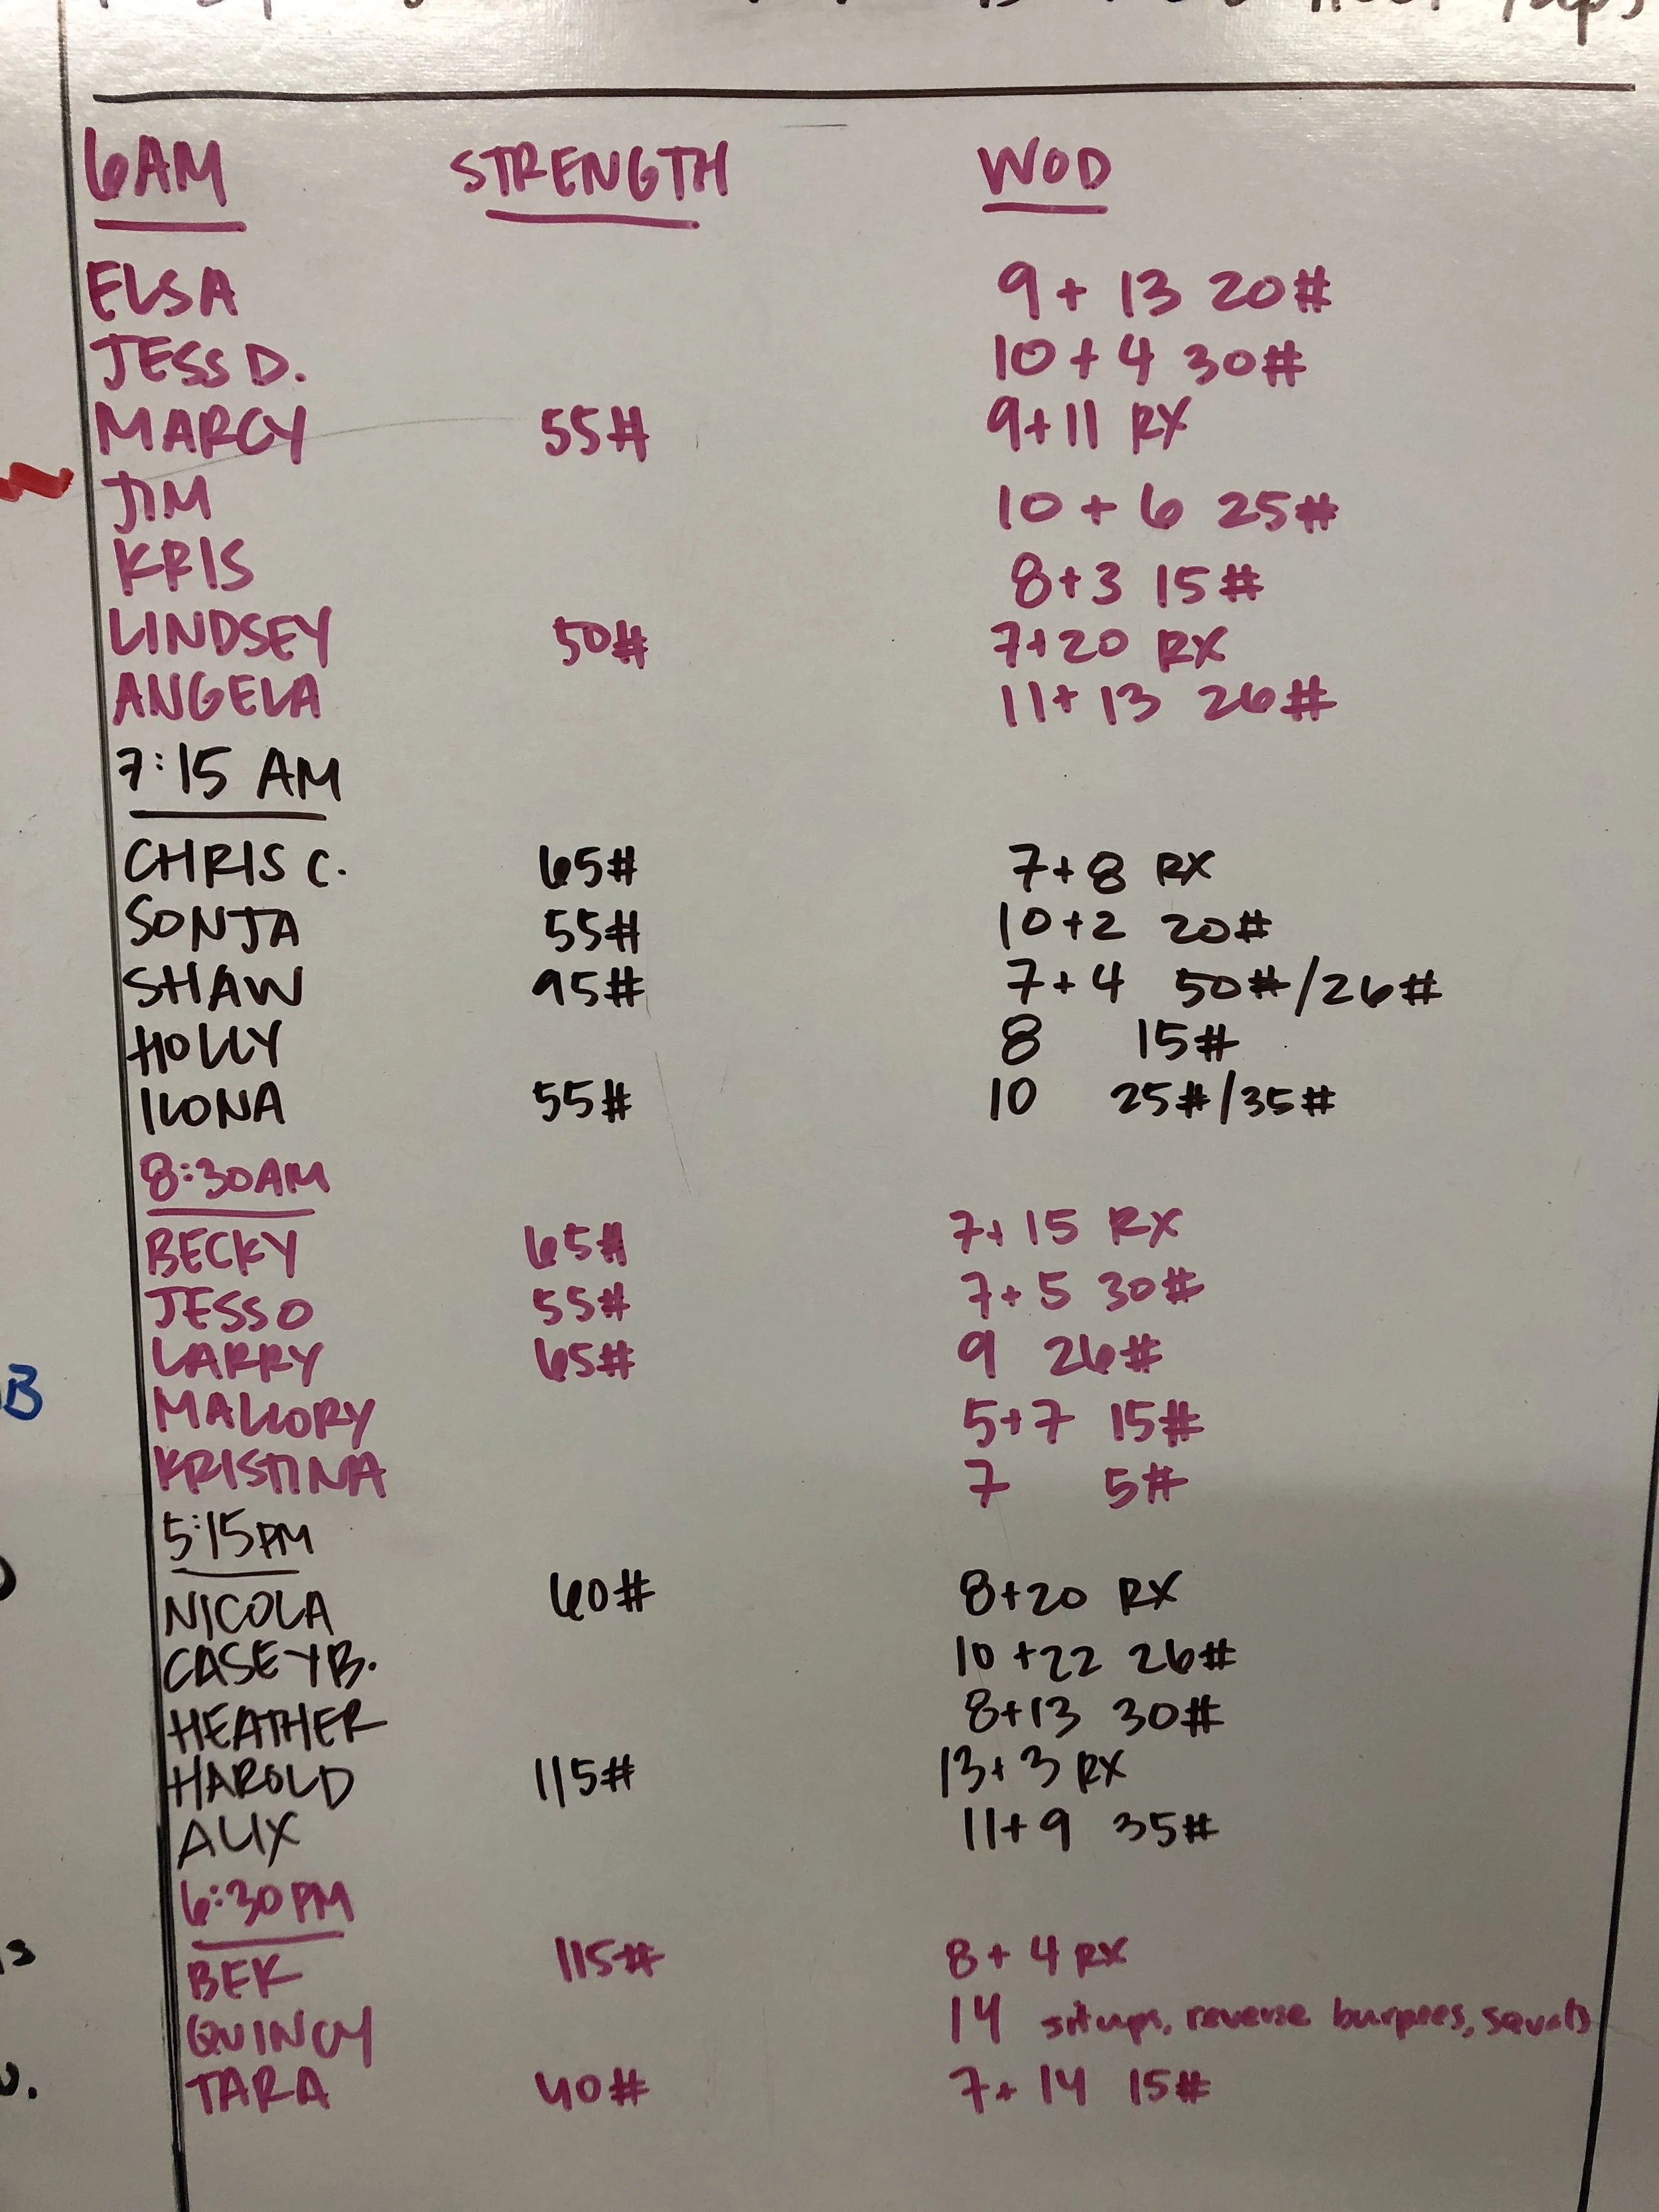 6AM STRENGTH WOD
ELSA 9 + 13 20#
JESS D. 10 + 4 30#
MARCY 55# 9+11 RX
JIM 10 + 6 25#
KRIS 8+3 15#
LINDSEY 50# 7+20 RX
ANGELA 11+ 13 26#
7:15 AM
CHRIS C. 65# 7+8 RX
SONJA 55# 10+2 20#
SHAW 95# 7+4 50#/26#
HOLLY 8 15#
ILONA 55# 10 25#/35#
8:30AM
BECKY 65# 7+ 15 RX
JESS O 55# 7+5 30#
LARRY 65# 9 26#
MALLORY 5+7 15#
KRISTINA 7 5#
5:15PM
NICOLA 60# 8+20 RX
CASEY B. 10 +22 26#
HEATHER 8+13 30#
HAROLD 115# 13+3 RX
ALIX 11+9 35#
6:30PM
BEK 115# 8+ 4 RX
QUINCY 14 situps, reverse burpees, squats
TARA 40# 7+ 14 15#